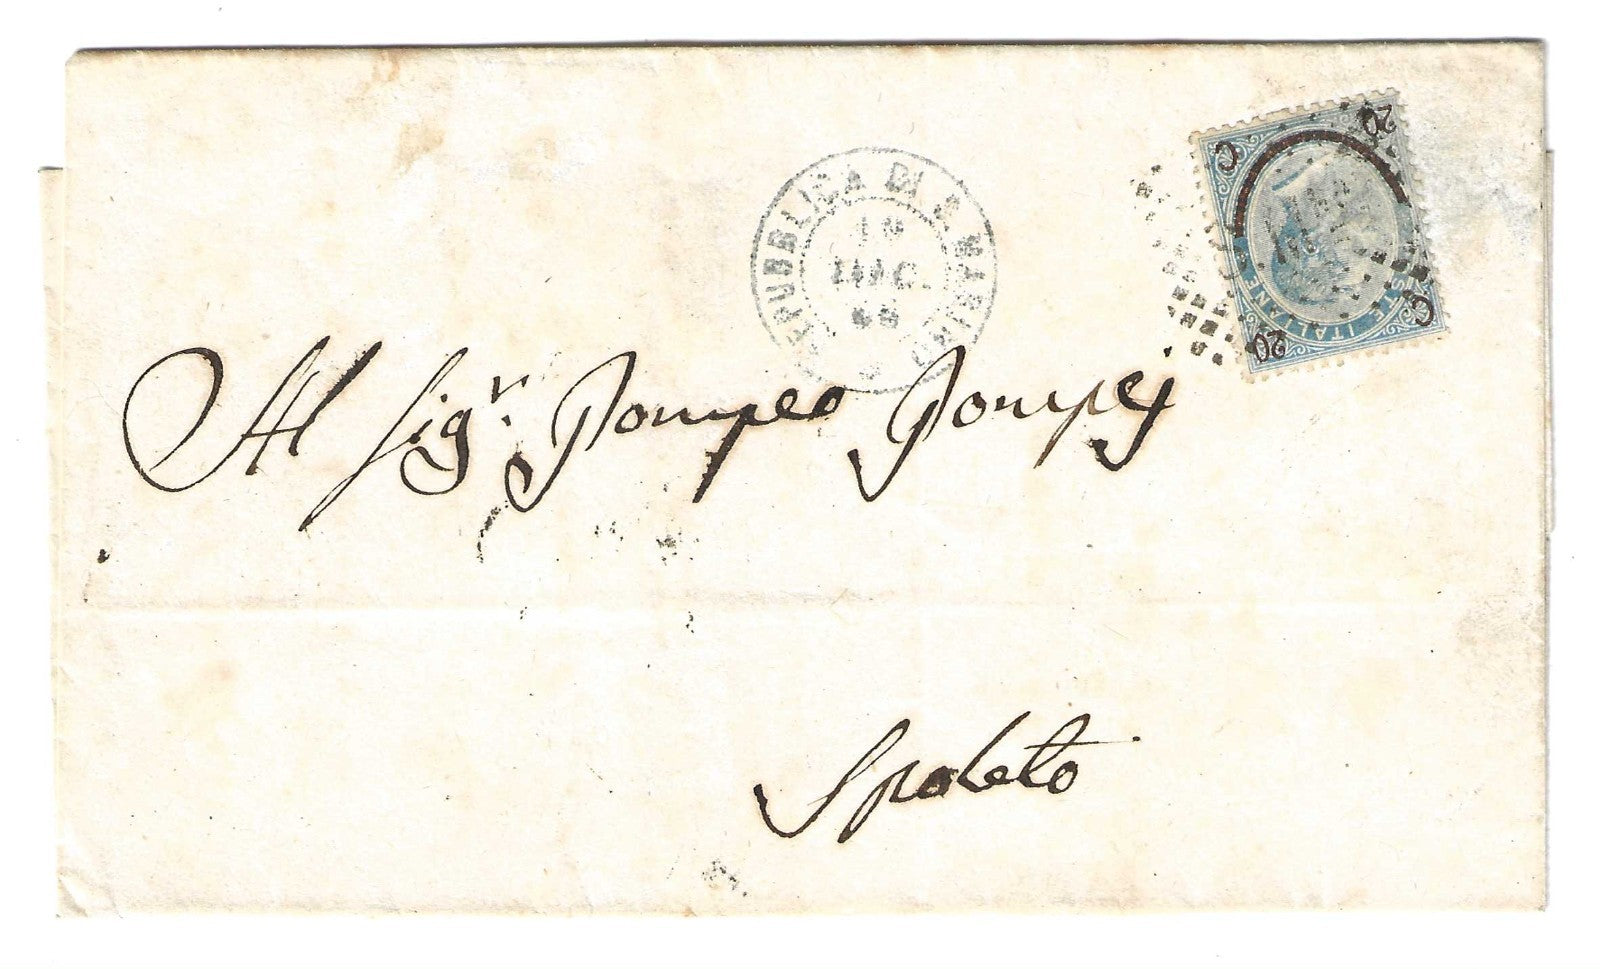 REPUBBLICA DI S. MARINO
66
C 20
POSTE ITALIANE
20 C
Al Sigr. Pompeo Pompej
Spoleto